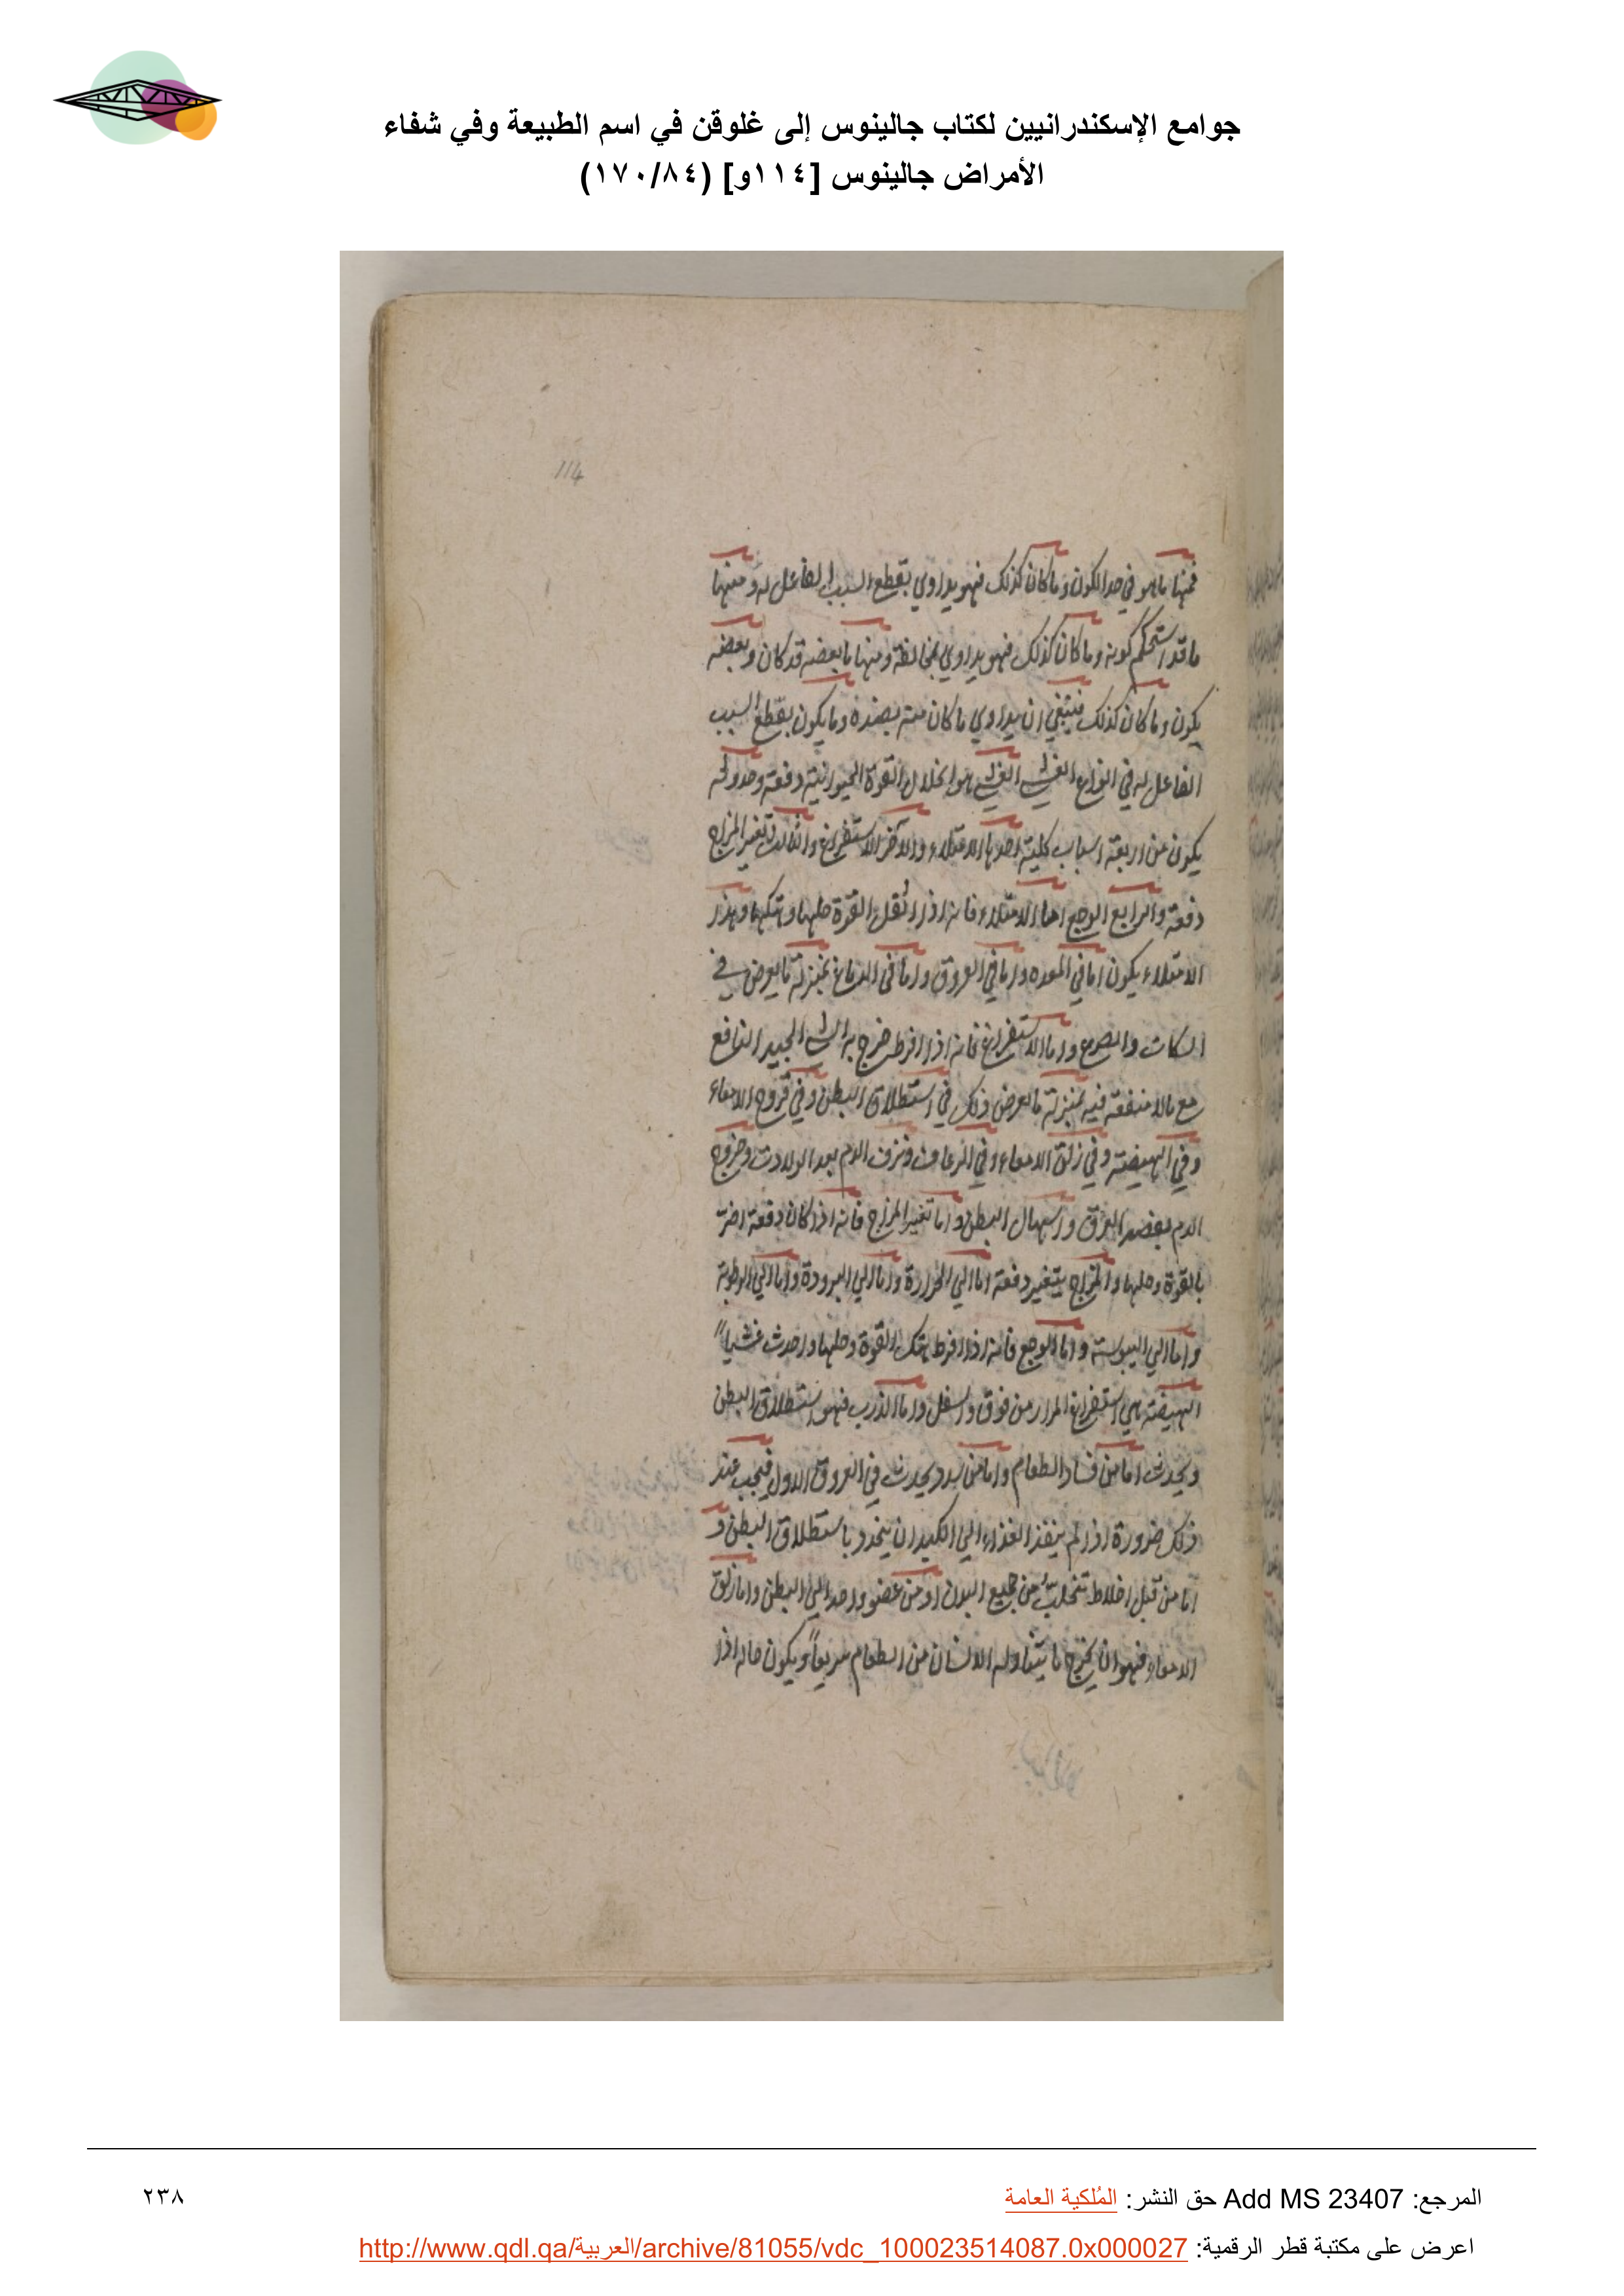 جوامع الإسكندرانيين لكتاب جالينوس إلى غلوقن في اسم الطبيعة وفي شفاء
الأمراض جالينوس [١١٤و] (١٧٠/٨٤)
114
فمنها ما هو في حد الكون وما كان كذلك فهو يداوي بقطع السبب الفاعل له ومنها
ما قد استحكم كونه وما كان كذلك فهو يداوي بمخالفة ومنها ما بعضه قد كان وبعضه
يكون وما كان كذلك فينبغي ان يداوي ما كان منه بضده وما يكون بقطع السبب
الفاعل له في انواع الغشي الغشي هو انحلال القوة الحيوانية دفعة وحدوثه
يكون من اربعة اسباب كلية احدها الامتلاء والآخر الاستفراغ والثالث تغير المزاج
دفعة والرابع الوجع اما الامتلاء فانه اذا اثقل القوة حلها وهتكها وهذا
الامتلاء يكون اما في المعده واما في العروق واما في الدماغ بمنزلة ما يعرض في
السكات والصرع واما الاستفراغ فانه اذا افرط خرج به الشي الجيد النافع
مع ما لا منفعة فيه بمنزلة ما يعرض ذلك في استطلاق البطن وفي قروح الامعاء
وفي الهيضة وفي زلق الامعاء وفي الرعاف ونزف الدم بعد الولادت وخروج
الدم بفصد العرق واسهال البطن واما تغير المزاج فانه اذا كان دفعة اضرت
بالقوة وحلها والمزاج يتغير دفعة اما الي الحرارة واما الي البرودة واما الي الرطوبة
واما الي اليبوسة واما الوجع فانه اذا افرط هتك القوة وحلها واحدث غشياً
الهيضة هي استفراغ المرار من فوق واسفل واما الذرب فهو استطلاق البطن
ويحدث اما من فساد الطعام واما من سدد يحدث في العروق الاول فيجب عند
ذلك ضرورة اذا لم ينفذ الغذاء الي الكبد ان ينحدر باستطلاق البطن و
اما من قبل اخلاط تتحلب من جميع البدن او من عضو واحد الي البطن واما زلق
الامعاء فهو ان يخرج ما يتناوله الانسان من الطعام سريعاً ويكون حاله اذا
المرجع: Add MS 23407 حق النشر: المُلكية العامة
٢٣٨
اعرض على مكتبة قطر الرقمية: http://www.qdl.qa/العربية/archive/81055/vdc_100023514087.0x000027